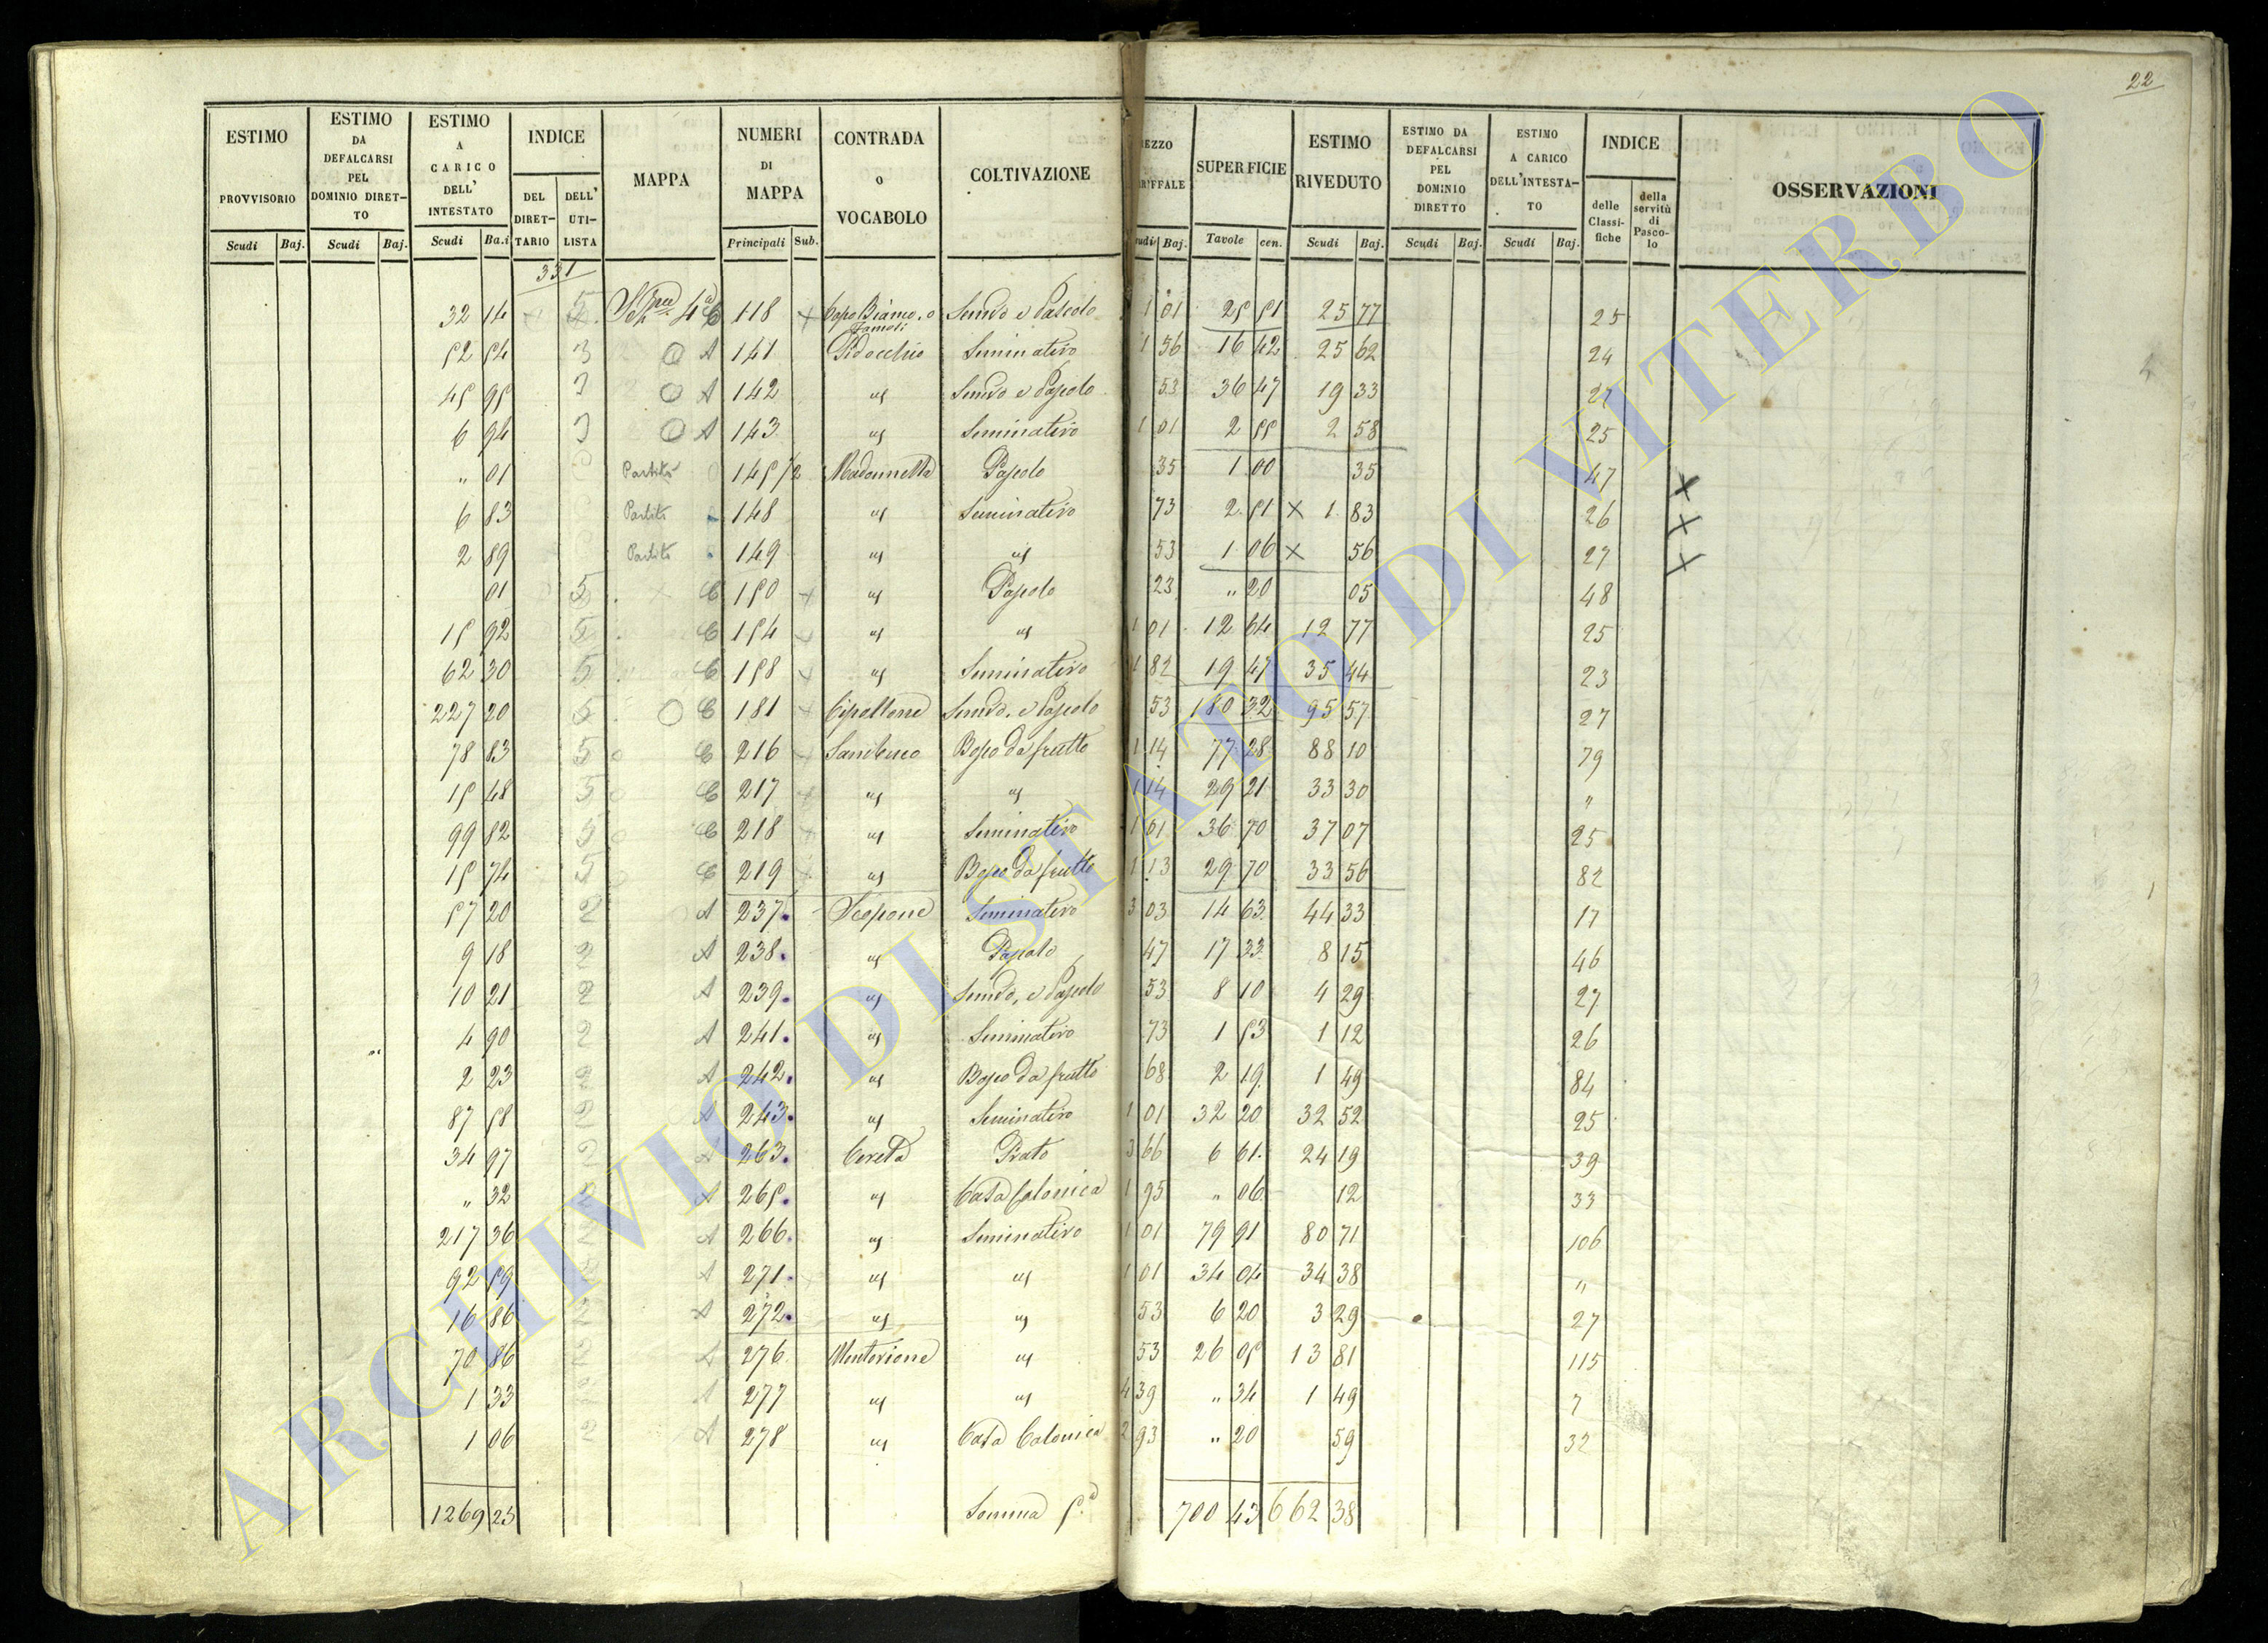 22
ESTIMO PROVVISORIO
ESTIMO DA DEFALCARSI PEL DOMINIO DIRET-TO
ESTIMO A CARICO DELL' INTESTATO
INDICE
DEL DIRET-TARIO
DELL' UTI-LISTA
MAPPA
NUMERI DI MAPPA
CONTRADA o VOCABOLO
COLTIVAZIONE
REZZO
RIFFALE
SUPERFICIE
ESTIMO RIVEDUTO
ESTIMO DA DEFALCARSI PEL DOMINIO DIRETTO
ESTIMO A CARICO DELL'INTESTA-TO
INDICE
delle Classi-fiche
della servitù di Pasco-lo
OSSERVAZIONI
Scudi Baj. Scudi Baj. Scudi Ba.i Principali Sub. udi Baj. Tavole cen. Scudi Baj. Scudi Baj. Scudi Baj.
331
32 14 5 4a C 118 x Capo Biamo, o Semvo e Pascolo 1 01 25 51 25 77 25
52 54 3 O A 141 Pidocchio Seminativo 1 56 16 42 25 62 24
45 95 3 O A 142 " Semvo e Pascolo 53 36 47 19 33 27
6 94 3 O A 143 " Seminativo 1 01 2 55 2 58 25
" 01 Partita 145 1/2 Madonnella Pascolo 35 1 00 35 47 x
6 83 Partita 148 " Seminativo 73 2 51 x 1 83 26 x
2 89 Partita 149 " " 53 1 06 x 56 27 x
01 5 C 150 x " Pascolo 23 " 20 05 48
15 92 5 C 154 x " " 1 01 12 64 12 77 25
62 30 5 C 158 x " Seminativo 1 82 19 47 35 44 23
227 20 5 O C 181 x Cipollone Semvo, e Pascolo 53 180 32 95 57 27
78 83 5 C 216 x Sambuco Bosco da frutto 1 14 77 28 88 10 79
15 48 5 C 217 x " " 1 14 29 21 33 30 "
99 82 5 C 218 x " Seminativo 1 01 36 70 37 07 25
15 74 5 C 219 x " Bosco da frutto 1 13 29 70 33 56 82
57 20 2 A 237. Scopone Seminativo 3 03 14 63 44 33 17
9 18 2 A 238. " Pascolo 47 17 33 8 15 46
10 21 2 A 239. " Semvo, e Pascolo 53 8 10 4 29 27
4 90 2 A 241. " Seminativo 73 1 53 1 12 26
2 23 2 A 242. " Bosco da frutto 68 2 19 1 49 84
87 58 2 A 243. " Seminativo 1 01 32 20 32 52 25
34 97 2 A 263. Cereta Prato 3 66 6 61 24 19 39
" 32 2 A 265. " Casa Colonica 1 95 " 06 12 33
217 36 2 A 266. " Seminativo 1 01 79 91 80 71 106
92 59 2 A 271. " " 1 01 34 04 34 38 "
16 86 2 A 272. " " 53 6 20 3 29 27
70 86 2 A 276. Montorione " 53 26 05 13 81 115
1 33 2 A 277 " " 4 39 " 34 1 49 7
1 06 2 A 278 " Casa Colonica 2 93 " 20 59 32
1269 23 Somma 700 43 662 38
ARCHIVIO DI STATO DI VITERBO